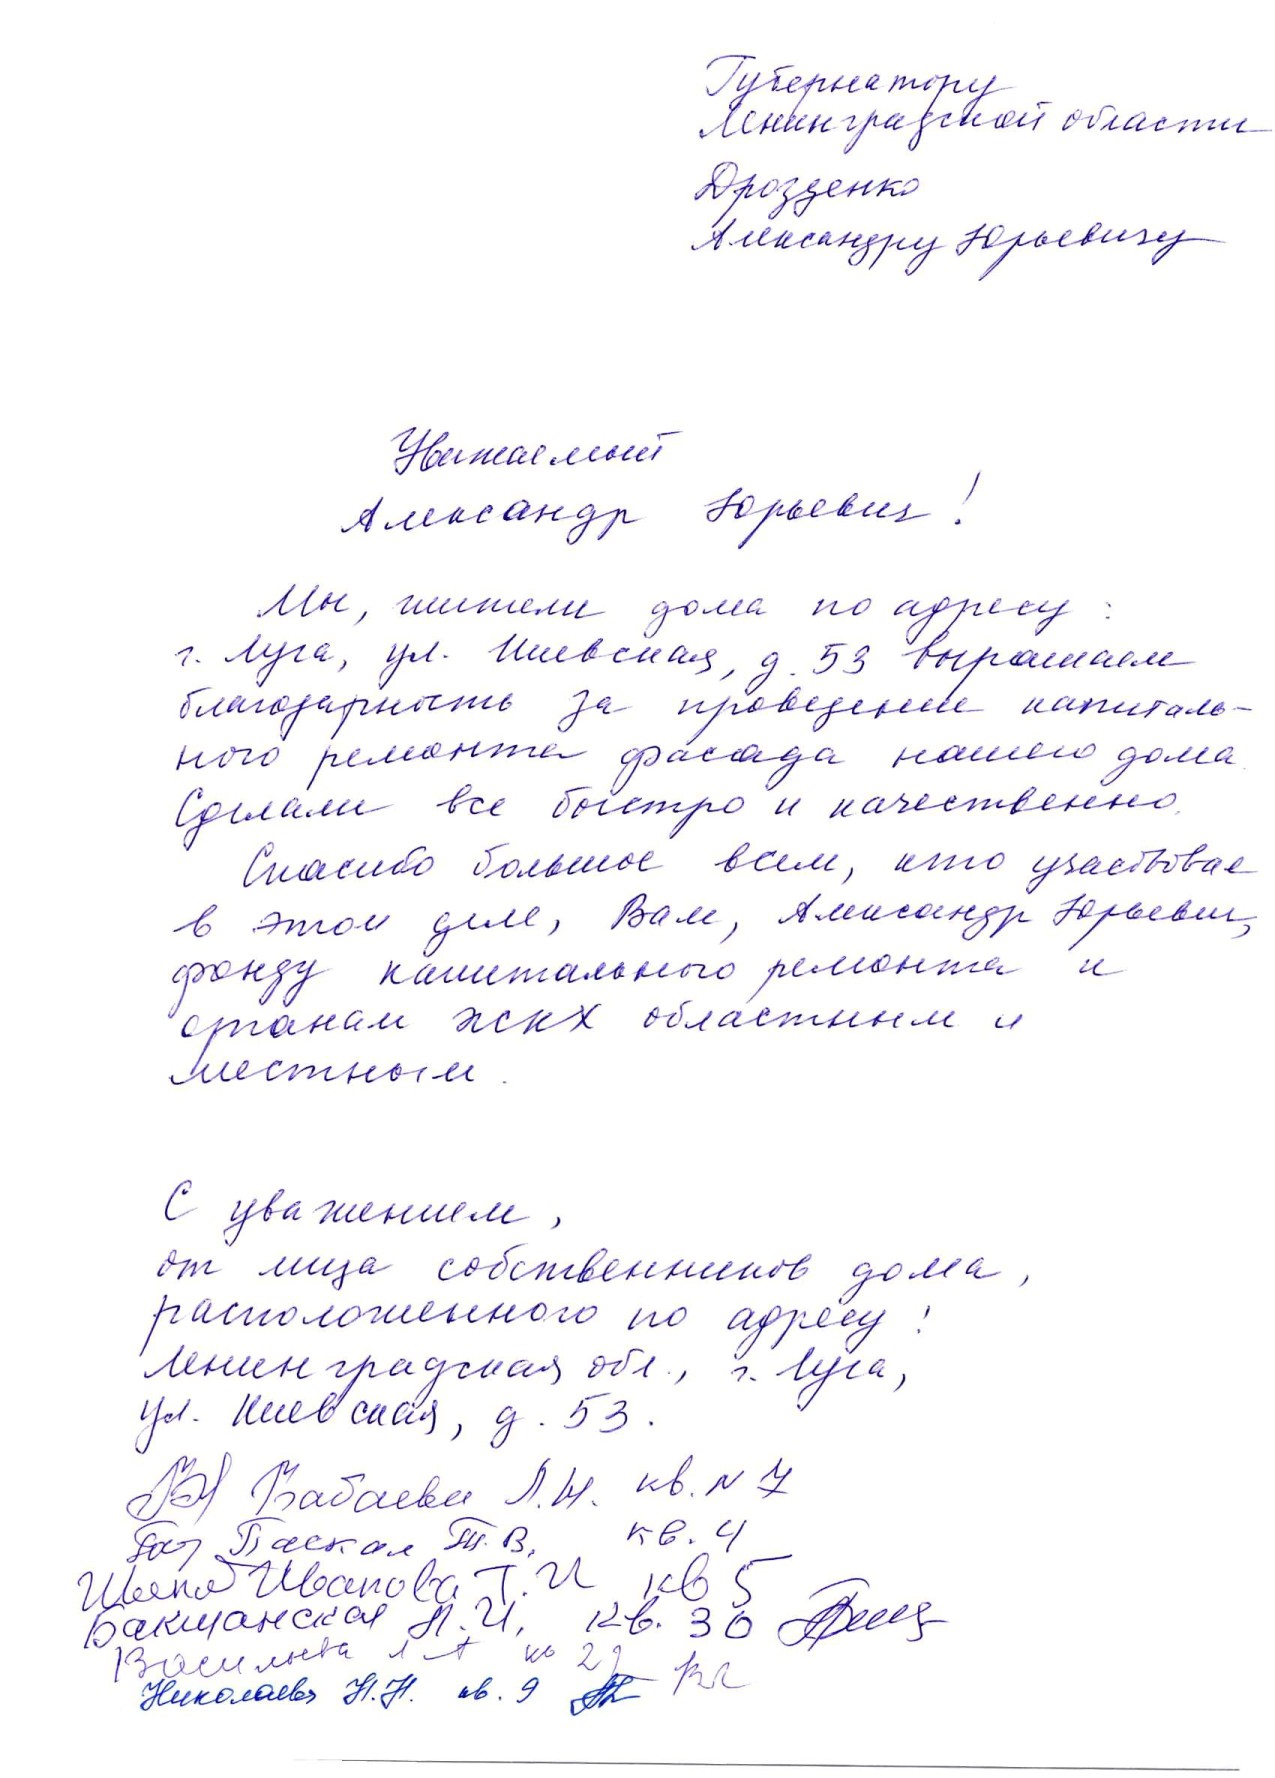 Губернатору
Ленинградской области
Дрозденко
Александру Юрьевичу
Уважаемый
Александр Юрьевич!
Мы, жители дома по адресу:
г. Луга, ул. Киевская, д. 53 выражаем
благодарность за проведение капиталь-
ного ремонта фасада нашего дома.
Сделали все быстро и качественно.
Спасибо большое всем, кто участвовал
в этом деле, Вам, Александр Юрьевич,
фонду капитального ремонта и
органам ЖКХ областным и
местным.
С уважением,
от лица собственников дома,
расположенного по адресу:
Ленинградская обл., г. Луга,
ул. Киевская, д. 53.
Бабаева Л.Н. кв. N 7
Паскал Т.В. кв. 4
Иванова Т.И кв 5
Бакшанская Л.И. кв. 30
Васильева кв
Николаева Н.Н. кв. 9